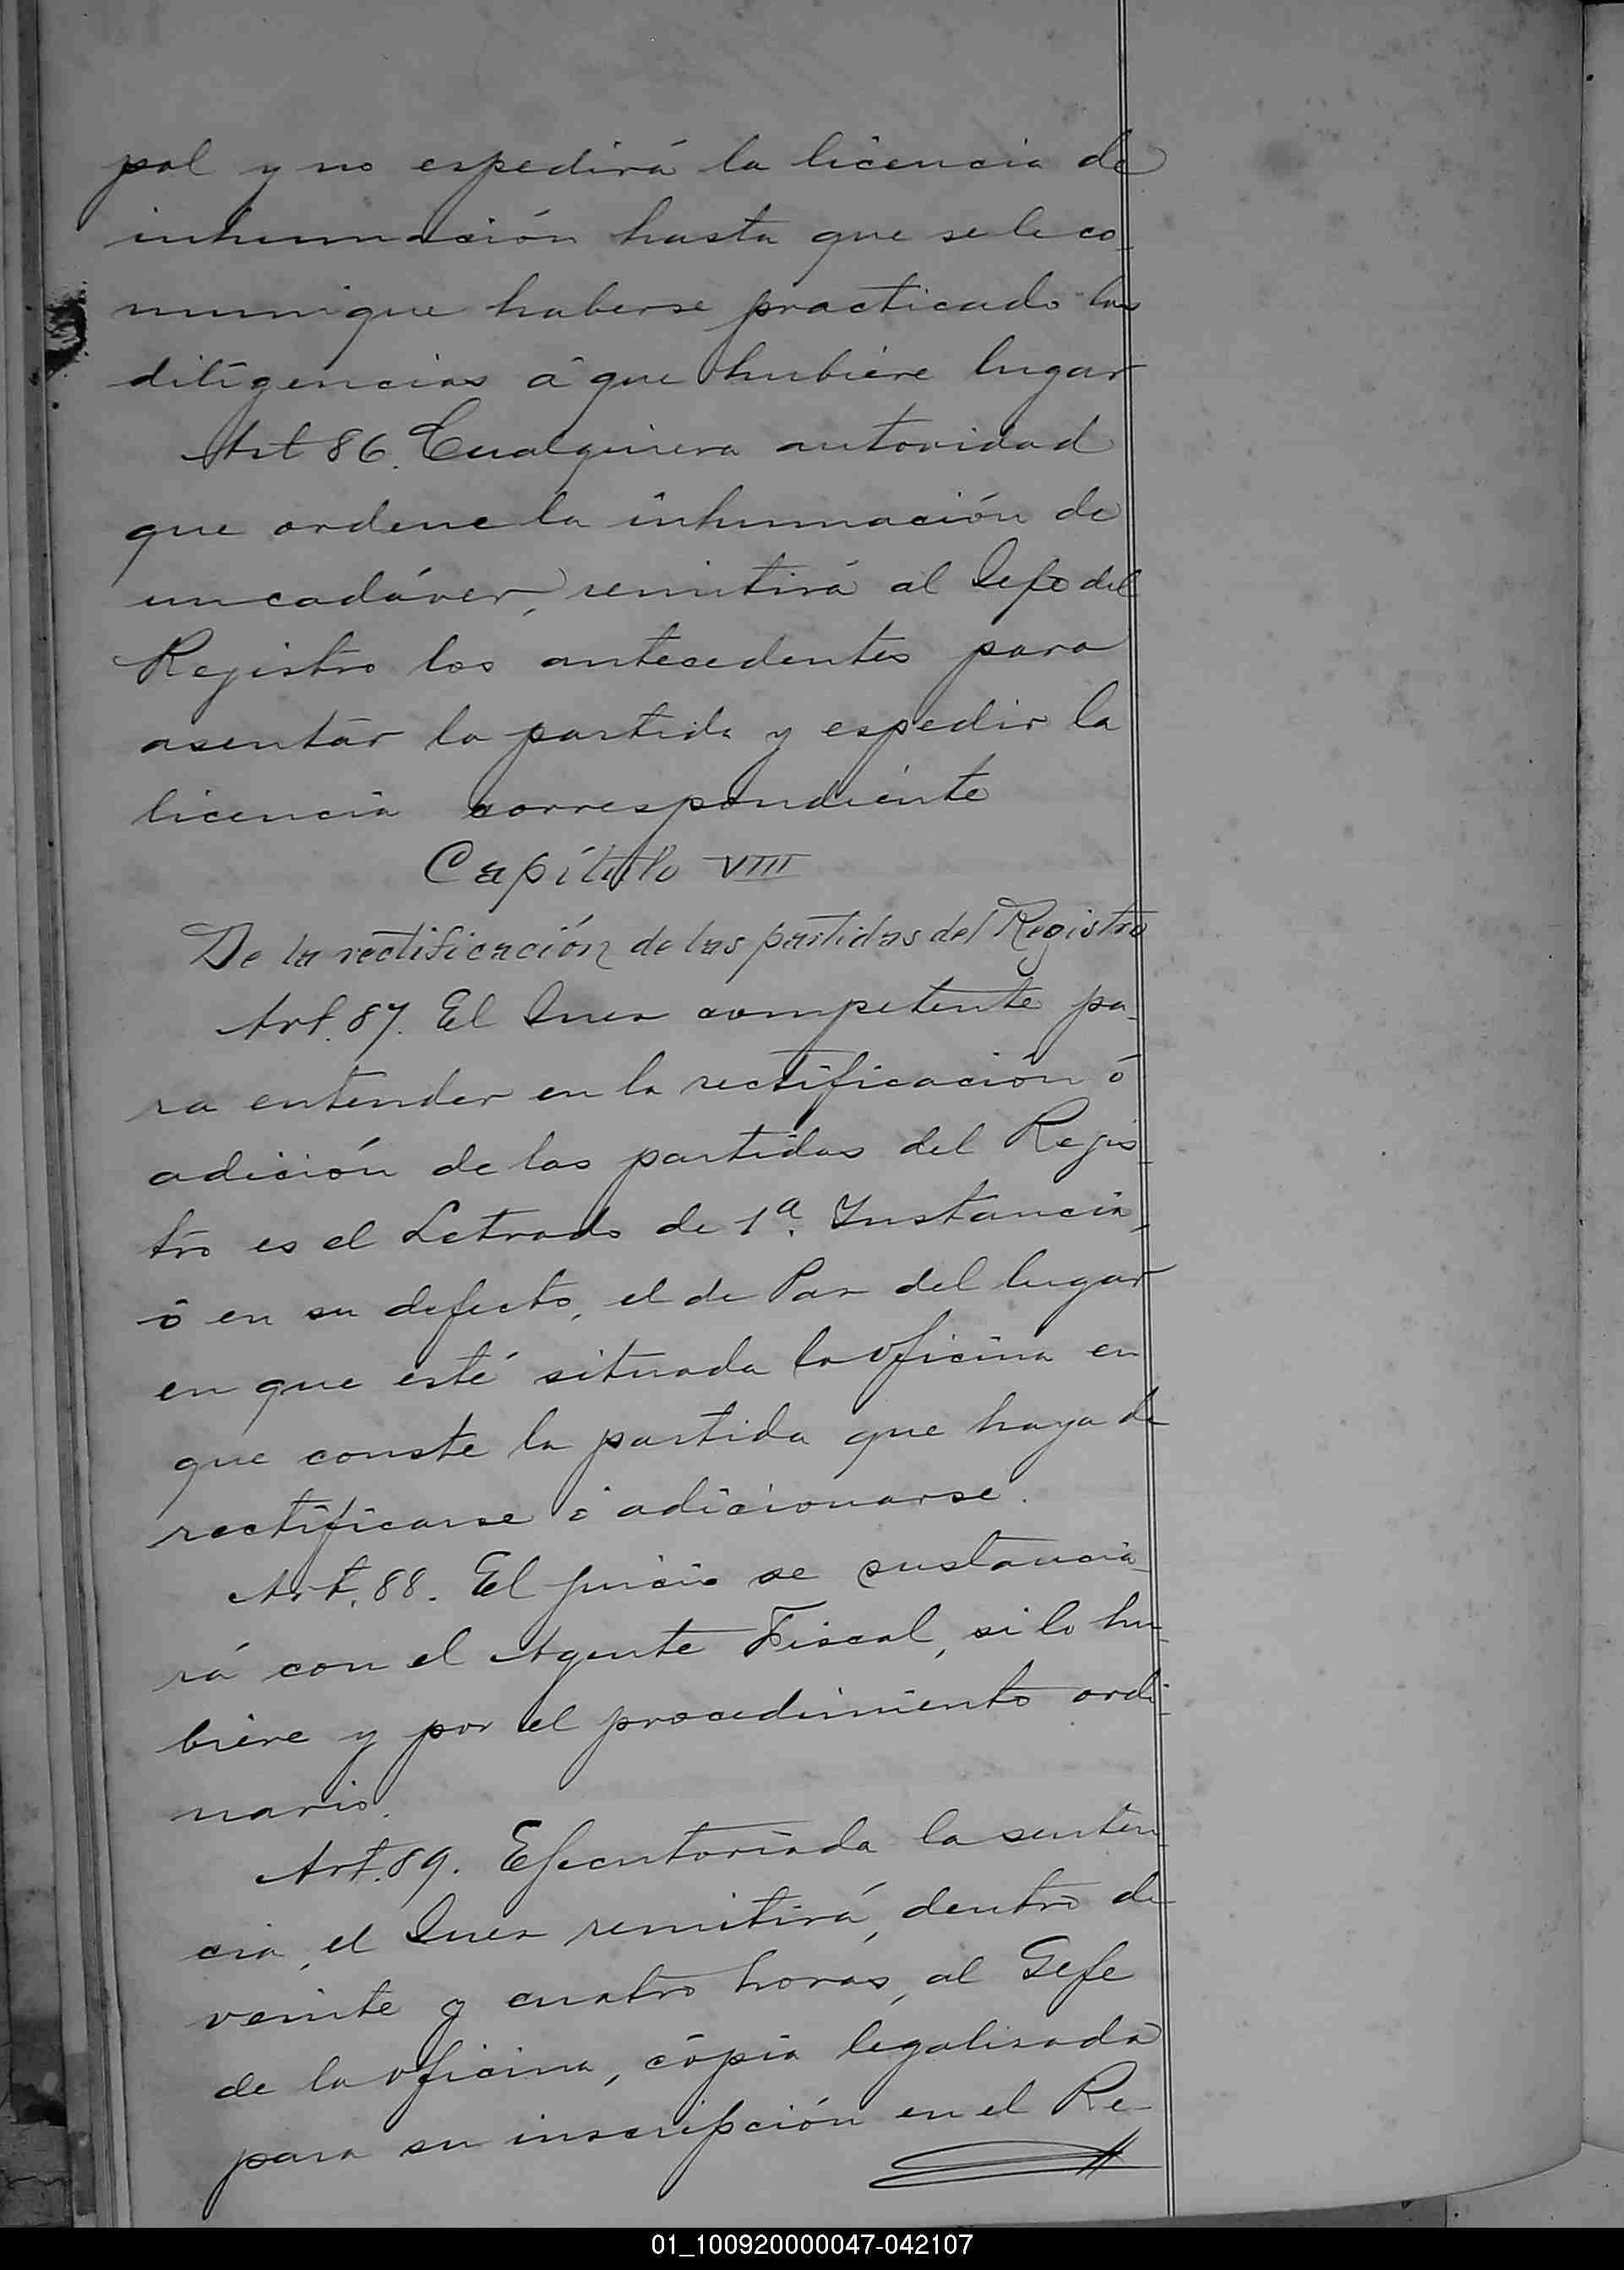 pal y no espedirá la licencia de
inhumación hasta que se le co-
munique haberse practicado las
diligencias á que hubiere lugar
Art 86. Cualquiera autoridad
que ordene la inhumación de
un cadáver, remitirá al Gefe del
Registro los antecedentes para
asentar la partida y espedir la
licencia correspondiente
Capítulo VIII
De la rectificación de las partidas del Registro
Art. 87. El Juez competente pa-
ra entender en la rectificación ó
adición de las partidas del Regis-
tro es el Letrado de 1ª. Instancia,
ó en su defecto, el de Paz del lugar
en que esté situada la oficina en
que conste la partida que haya de
rectificarse ó adicionarse.
Art. 88. El juicio se sustancia-
rá con el Agente Fiscal, si lo hu-
biere y por el procedimiento ordi-
nario.
Art. 89. Ejecutoriada la senten-
cia, el Juez remitirá, dentro de
veinte y cuatro horas, al Gefe
de la oficina, cópia legalizada
para su inscripción en el Re-
01_100920000047-042107